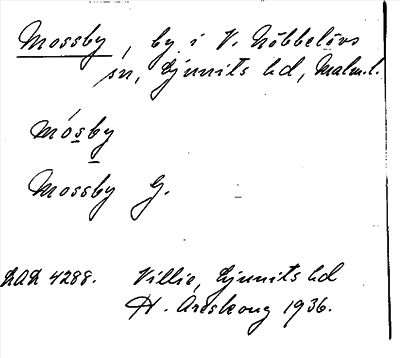 Mossby, by i V. Nöbbelövs
sn, Ljunits hd, Malm.l.
mósby
Mossby G.
DAL 4288. Villie, Ljunits hd
H. Areskoug 1936.